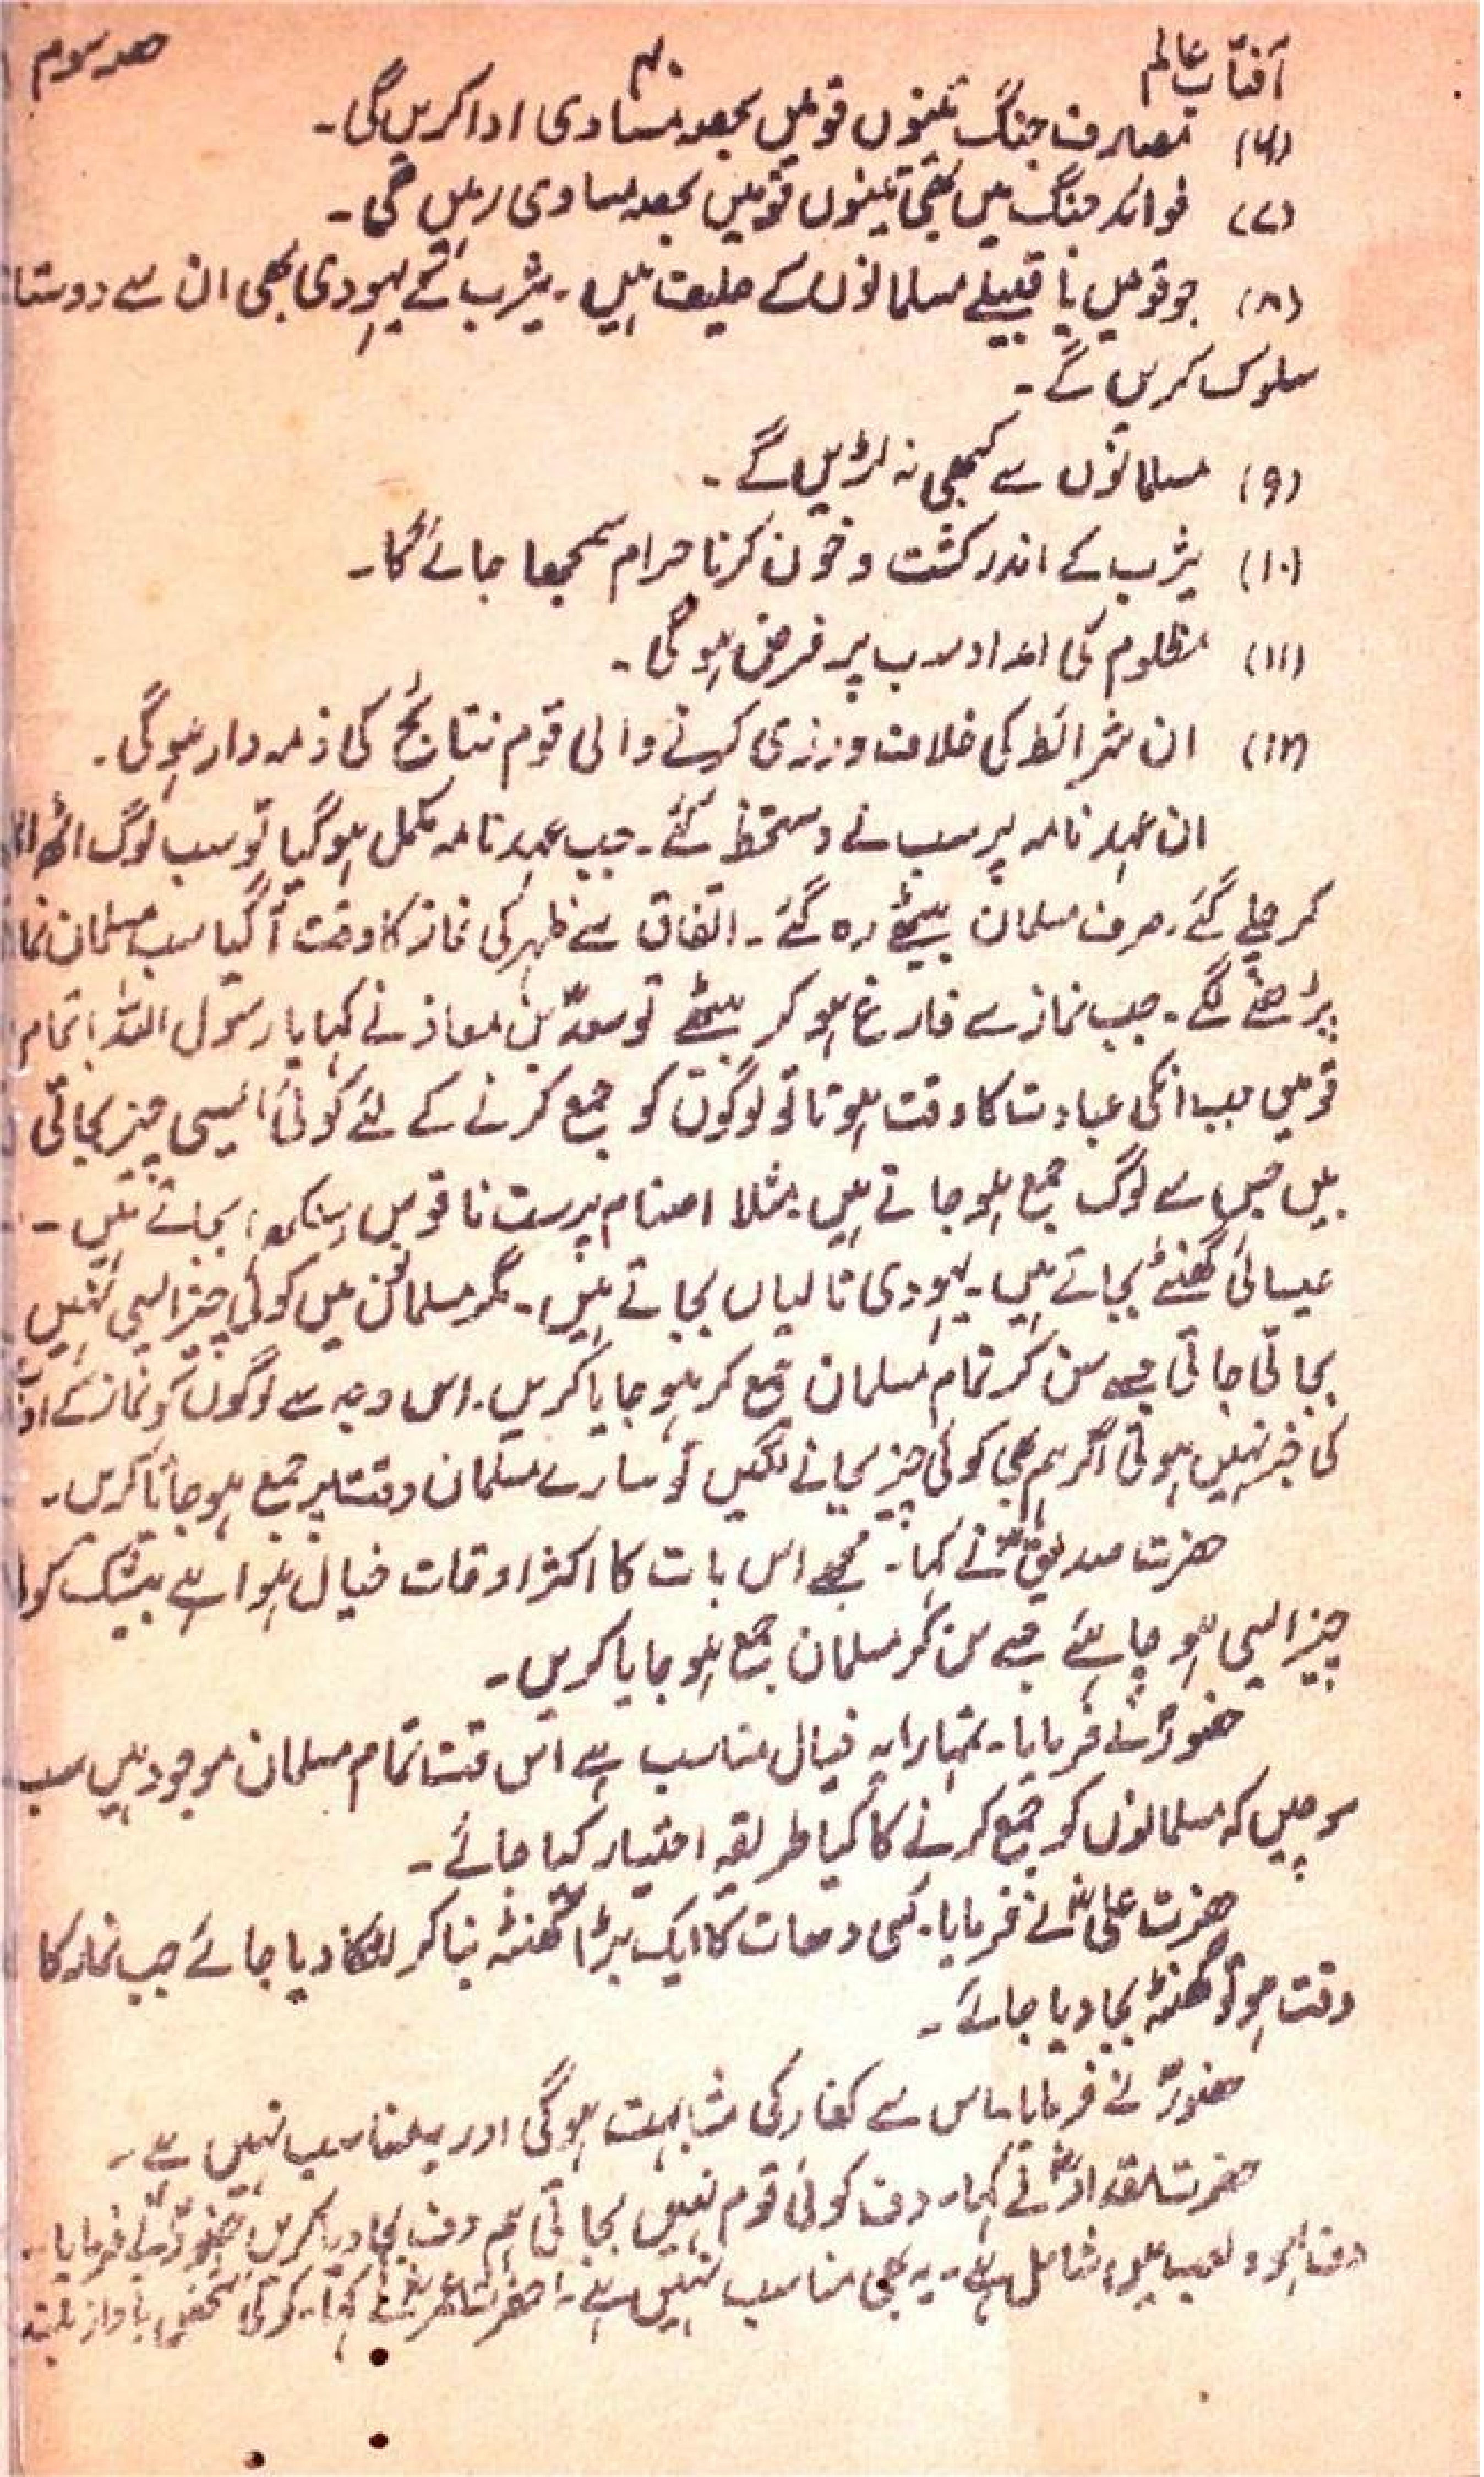 آفتاب عالم ۴ حصہ سوم
(۶) مصارف جنگ تینوں قومیں بحصہ مساوی ادا کریں گی۔
(۷) فوائد جنگ میں بھی تینوں قومیں بحصہ مساوی رہیں گی۔
(۸) جو قومیں یا قبیلے مسلمانوں کے حلیف ہیں۔ یثرب کے یہودی بھی ان سے دوستا
سلوک کریں گے۔
(۹) مسلمانوں سے کبھی نہ لڑیں گے۔
(۱۰) یثرب کے اندر کشت و خون کرنا حرام سمجھا جائے گا۔
(۱۱) مظلوم کی امداد سب پر فرض ہو گی۔
(۱۲) ان شرائط کی خلاف ورزی کرنے والی قوم نتایج کی ذمہ دار ہوگی۔
ان عہد نامہ پر سب نے دستخط کئے۔ جب عہد نامہ مکمل ہو گیا تو سب لوگ اٹھ
کر چلے گئے۔ صرف مسلمان بیٹھے رہ گئے۔ اتفاق سے ظہر کی نماز کا وقت آ گیا سب مسلمان نما
پڑھنے لگے۔ جب نماز سے فارغ ہو کر بیٹھے تو سعدؓ بن معاذ نے کہا یا رسول اللہ! تمام
قومیں جب انکی عبادت کا وقت ہوتا تو لوگوں کو جمع کرنے کے لئے کوئی ایسی چیز بجاتی
ہیں جس سے لوگ جمع ہو جاتے ہیں مثلا اصنام پرست ناقوس (سنکھ) بجاتے ہیں۔
عیسائی گھنٹے بجاتے ہیں۔ یہودی تالیاں بجاتے ہیں۔ مگر مسلمانوں میں کوئی چیز ایسی نہیں
بجائی جاتی جسے سن کر تمام مسلمان جمع کر ہو جایا کریں۔ اس وجہ سے لوگوں کو نماز کے
کی خبر نہیں ہوتی اگر ہم بھی کوئی چیز بجانے لگیں تو سارے مسلمان وقت پر جمع ہو جایا کریں۔
حضرت صدیقؓ نے کہا۔ مجھے اس بات کا اکثر اوقات خیال ہوا ہے بیشک کو
چیز ایسی ہو چاہئے جسے سن کر مسلمان جمع ہو جایا کریں۔
حضورؐ نے فرمایا۔ تمہارا یہ خیال مناسب ہے اس وقت تمام مسلمان موجود ہیں سب
سوچیں کہ مسلمانوں کو جمع کرنے کا کیا طریقہ اختیار کیا جائے۔
حضرت علیؓ نے فرمایا۔ کسی دھات کا ایک بڑا گھنٹہ بنا کر لٹکا دیا جائے جب نماز کا
وقت ہو تو گھنٹہ بجا دیا جائے۔
حضورؐ نے فرمایا۔ اس سے کفار کی مشابہت ہو گی اور یہ مناسب نہیں ہے۔
حضرت مقدادؓ نے کہا۔ دف کوئی قوم نہیں بجاتی ہم دف بجا دیا کریں حضورؐ نے فرمایا۔
دف لہو و لعب میں شامل ہے۔ یہ بھی مناسب نہیں ہے۔ حضرت عمرؓ نے کہا۔ کوئی شخص بآواز بلند